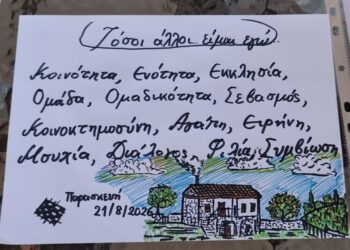 Τόσοι άλλοι... είμαι εγώ.
Κοινότητα, Ενότητα, Εκκλησία,
Ομάδα, Ομαδικότητα, Σεβασμός,
Κοινοκτημοσύνη, Αγάπη, Ειρήνη,
Διάλογος, Φιλία, Συμβίωση
Παρασκευή
21/8/2026